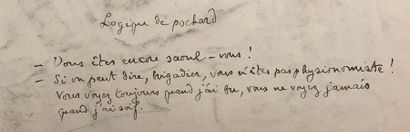 Logique de pochard
– Vous êtes encore saoul – vous !
– Si on peut dire, brigadier, vous n'êtes pas physionomiste !
Vous voyez toujours quand j'ai bu, vous ne voyez jamais
quand j'ai soif.